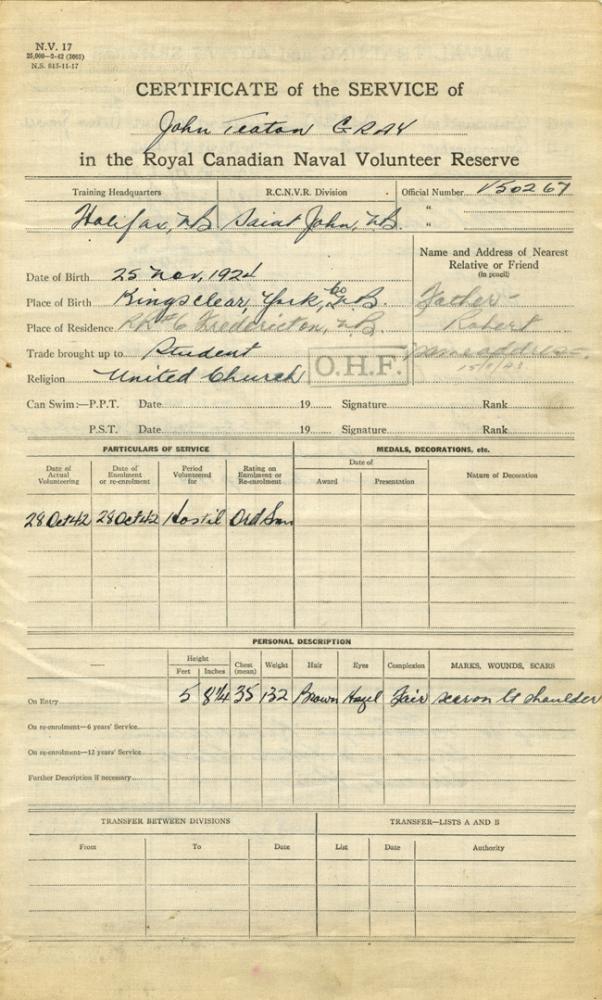 N.V. 17
25,000—2-42 (3003)
N.S. 815-11-17
CERTIFICATE of the SERVICE of
John Teaton GRAY
in the Royal Canadian Naval Volunteer Reserve
Training Headquarters R.C.N.V.R. Division Official Number V50267
Halifax, NB Saint John, N.B. "
"
Name and Address of Nearest
Relative or Friend
(in pencil)
Date of Birth 25 Nov, 1924
Place of Birth Kingsclear, York, Co N.B. Father -
Place of Residence RR#6 Fredericton, N.B. Robert
Trade brought up to Student same address.
O.H.F.
Religion United Church
Can Swim:—P.P.T. Date 19 Signature Rank
P.S.T. Date 19 Signature Rank
PARTICULARS OF SERVICE MEDALS, DECORATIONS, etc.
Date of Actual Volunteering Date of Enrolment or re-enrolment Period Volunteered for Rating on Enrolment or Re-enrolment Date of Nature of Decoration
Award Presentation
28 Oct 42 28 Oct 42 Hostil Ord Smn
PERSONAL DESCRIPTION
Height Chest (mean) Weight Hair Eyes Complexion MARKS, WOUNDS, SCARS
Feet Inches
On Entry 5 8 1/4 35 132 Brown Hazel Fair scar on lt shoulder
On re-enrolment—6 years' Service
On re-enrolment—12 years' Service
Further Description if necessary
TRANSFER BETWEEN DIVISIONS TRANSFER—LISTS A AND B
From To Date List Date Authority